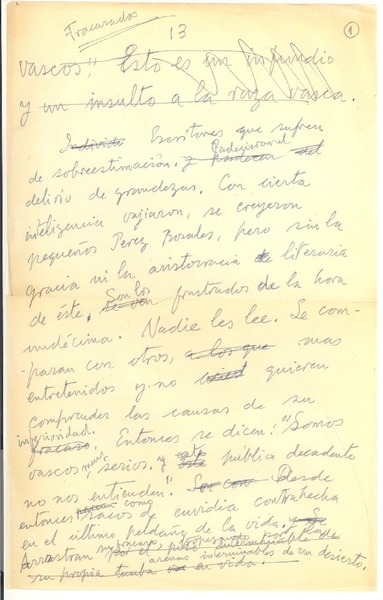 Fracasados
13
1
vascos!! Esto es un infundio
y un insulto a la raza vasca.
Individ Escritores que sufren
de sobreestimación. y padecen del
delirio de grandezas. Con cierta
inteligencia viajaron, se creyeron
pequeños Perez Rosales, pero sin la
gracia ni la aristocracia de literaria
de éste. Son los frustrados de la hora
undécima. Nadie les lee. Se com-
paran con otros, a los que mas
entretenidos y no quieren
comprender las causas de su
inferioridad.
fracaso. Entonces se dicen: "Somos
vascos, serios, y este publico decadente
no nos entiende." Desde
entonces como sacos de envidia contrahecha
en el último peldaño de la vida, y se
arrastran su fracaso, por las
arenas interminables de un desierto.
su propia tumba en vida.